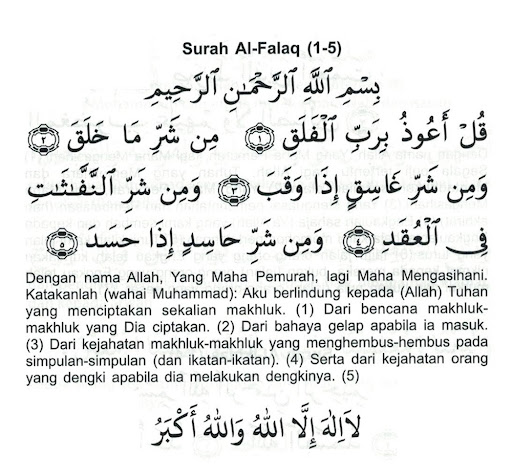 Surah Al-Falaq (1-5)
بِسْمِ اللَّهِ الرَّحْمَٰنِ الرَّحِيمِ
قُلْ أَعُوذُ بِرَبِّ الْفَلَقِ ﴿١﴾ مِن شَرِّ مَا خَلَقَ ﴿٢﴾
وَمِن شَرِّ غَاسِقٍ إِذَا وَقَبَ ﴿٣﴾ وَمِن شَرِّ النَّفَّاثَاتِ
فِي الْعُقَدِ ﴿٤﴾ وَمِن شَرِّ حَاسِدٍ إِذَا حَسَدَ ﴿٥﴾
Dengan nama Allah, Yang Maha Pemurah, lagi Maha Mengasihani.
Katakanlah (wahai Muhammad): Aku berlindung kepada (Allah) Tuhan
yang menciptakan sekalian makhluk. (1) Dari bencana makhluk-
makhluk yang Dia ciptakan. (2) Dari bahaya gelap apabila ia masuk.
(3) Dari kejahatan makhluk-makhluk yang menghembus-hembus pada
simpulan-simpulan (dan ikatan-ikatan). (4) Serta dari kejahatan orang
yang dengki apabila dia melakukan dengkinya. (5)
لاَاِلٰهَ إِلَّا اللهُ وَاللهُ أَكْبَرُ